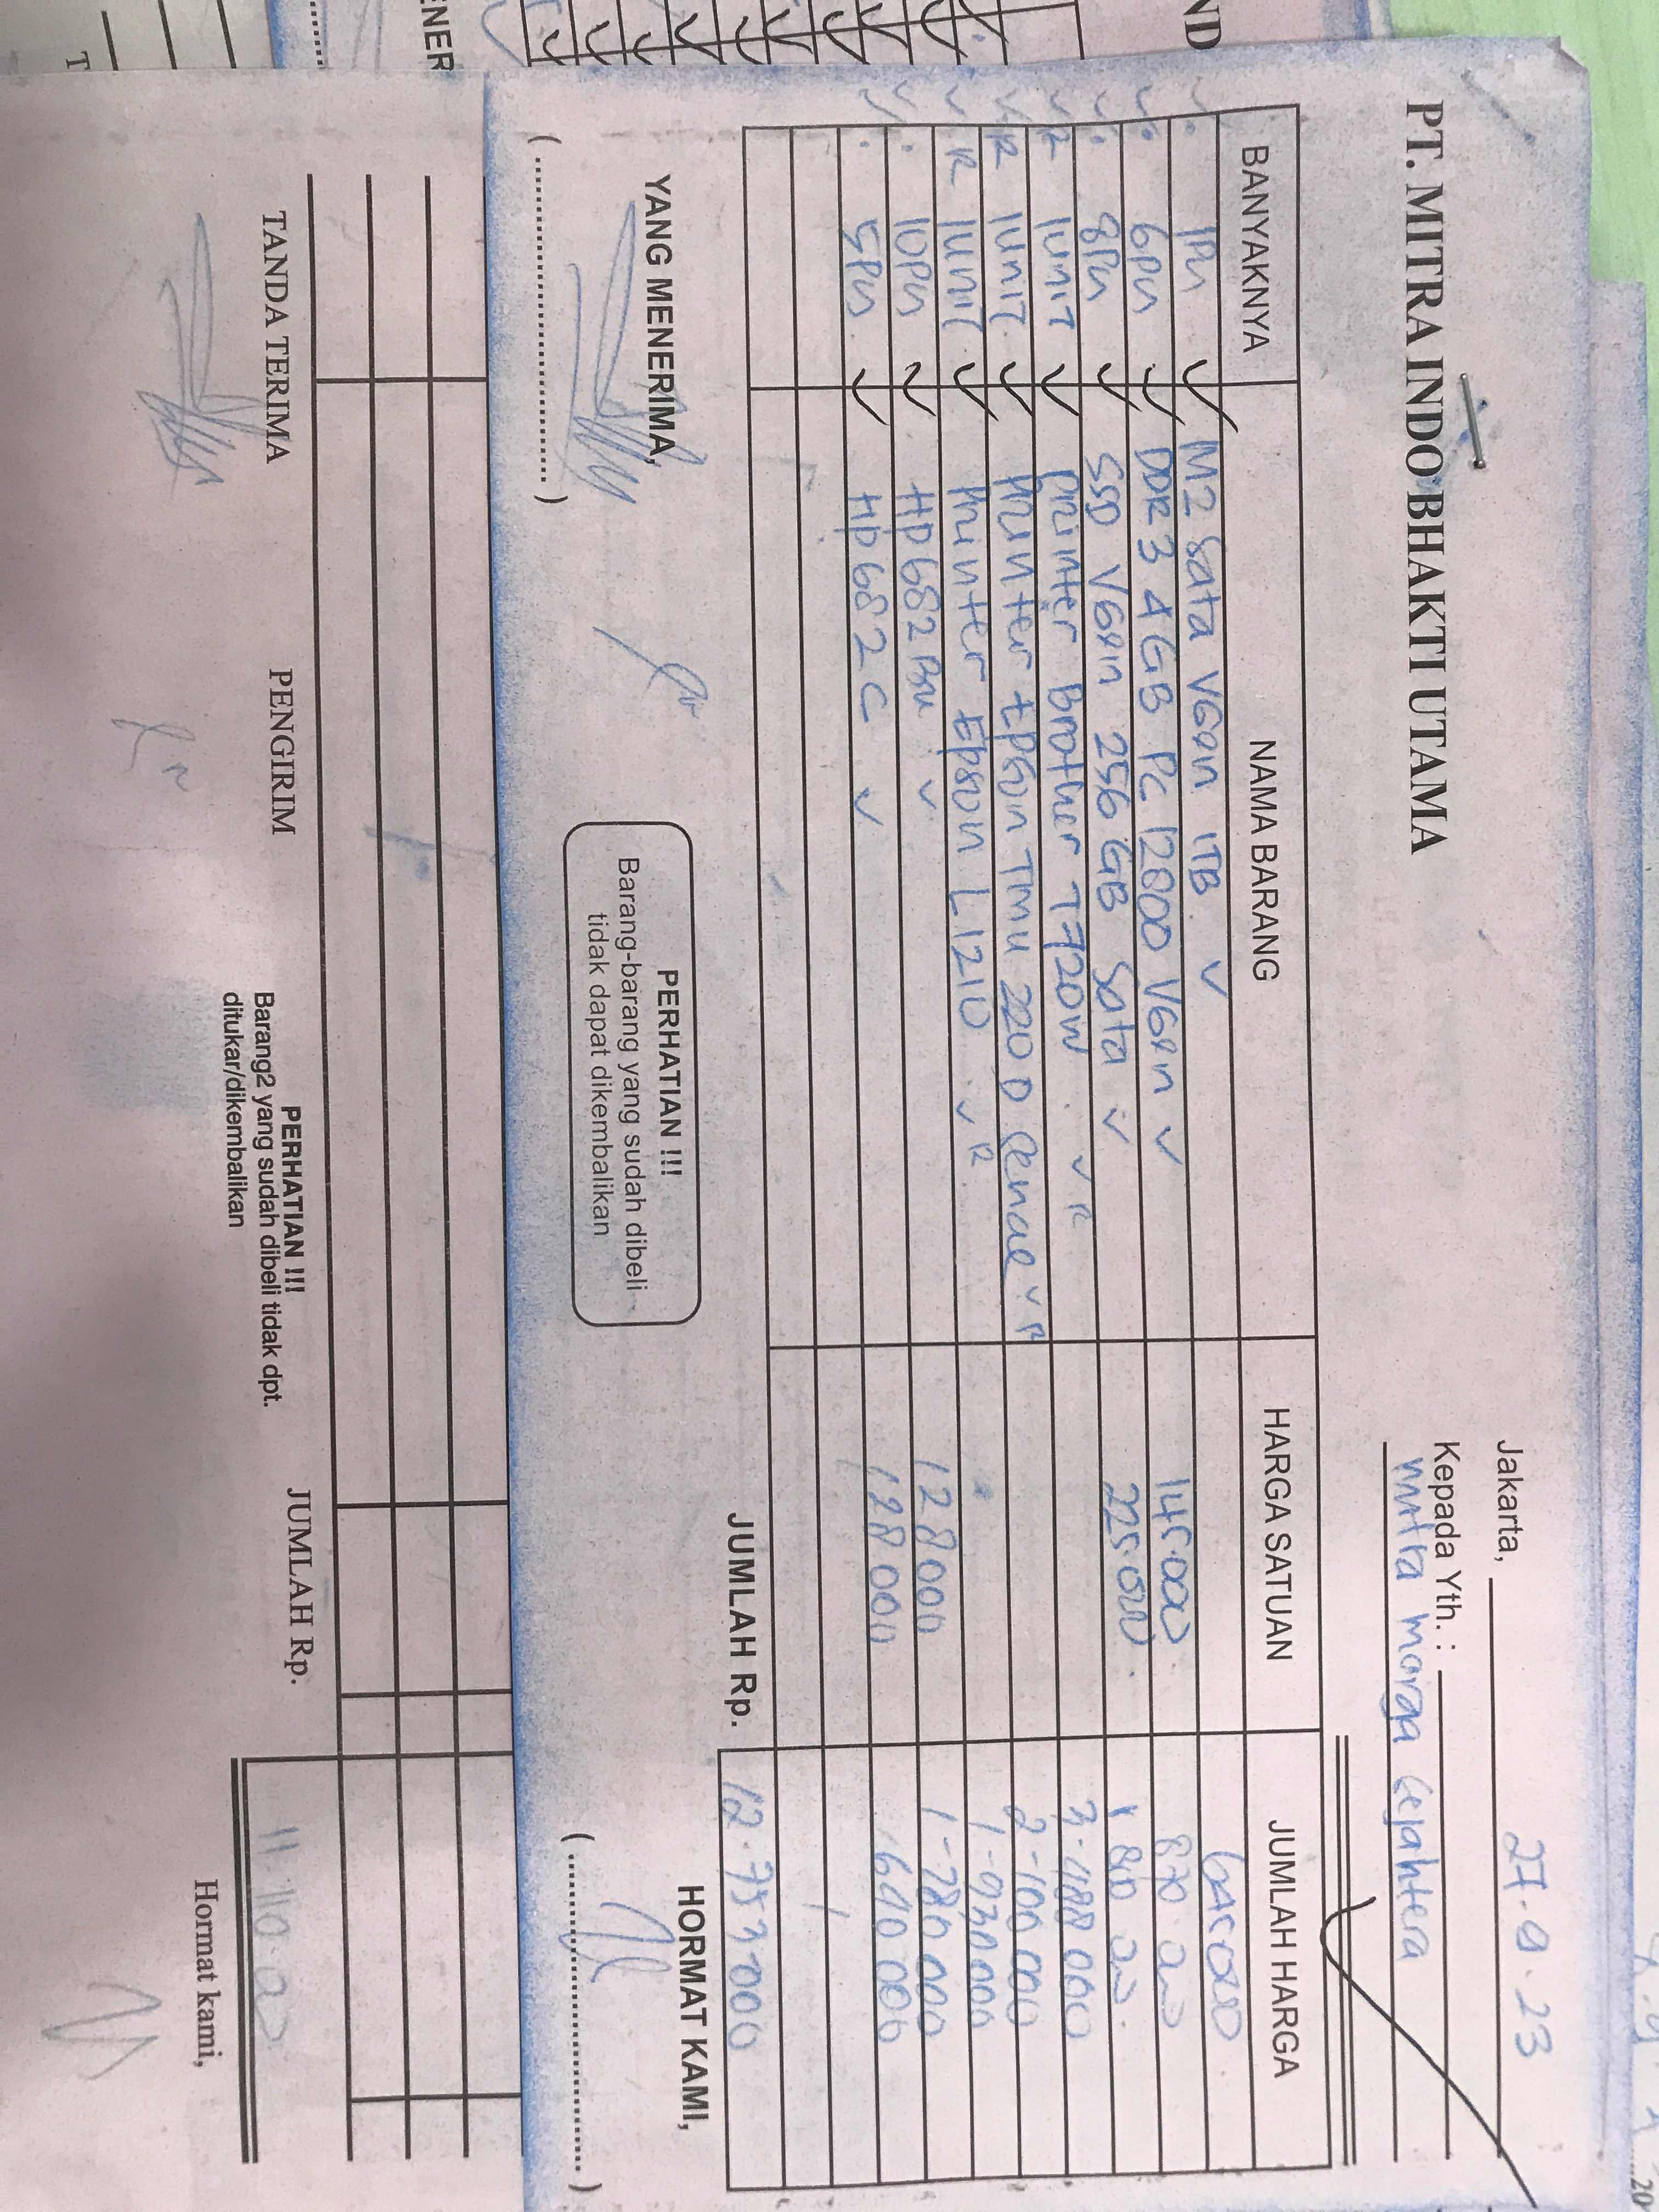 PT. MITRA INDO BHAKTI UTAMA
Jakarta, 27.9.23
Kepada Yth. :
mitra marga Sejahtera
BANYAKNYA NAMA BARANG HARGA SATUAN JUMLAH HARGA
1Pcs M2 Sata VGen 1TB 645.000
6pcs DDR3 4GB PC 12800 VGen 145.000 870.000
8Pcs SSD VGen 256 GB Sata 225.000 1.800.000
1unit Printer Brother T720W 3.488.000
1unit Printer Epson TMU 220 D 2.100.000
1unit Printer Epson L1210 1.930.000
10Pcs HP 682 128000 1.280.000
5Pcs HP 682 C 128000 640.000
JUMLAH Rp. 12.753.000
YANG MENERIMA,
PERHATIAN !!!
Barang-barang yang sudah dibeli
tidak dapat dikembalikan
HORMAT KAMI,
JUMLAH Rp. 11.110.000
TANDA TERIMA PENGIRIM
PERHATIAN !!!
Barang2 yang sudah dibeli tidak dpt.
ditukar/dikembalikan
Hormat kami,